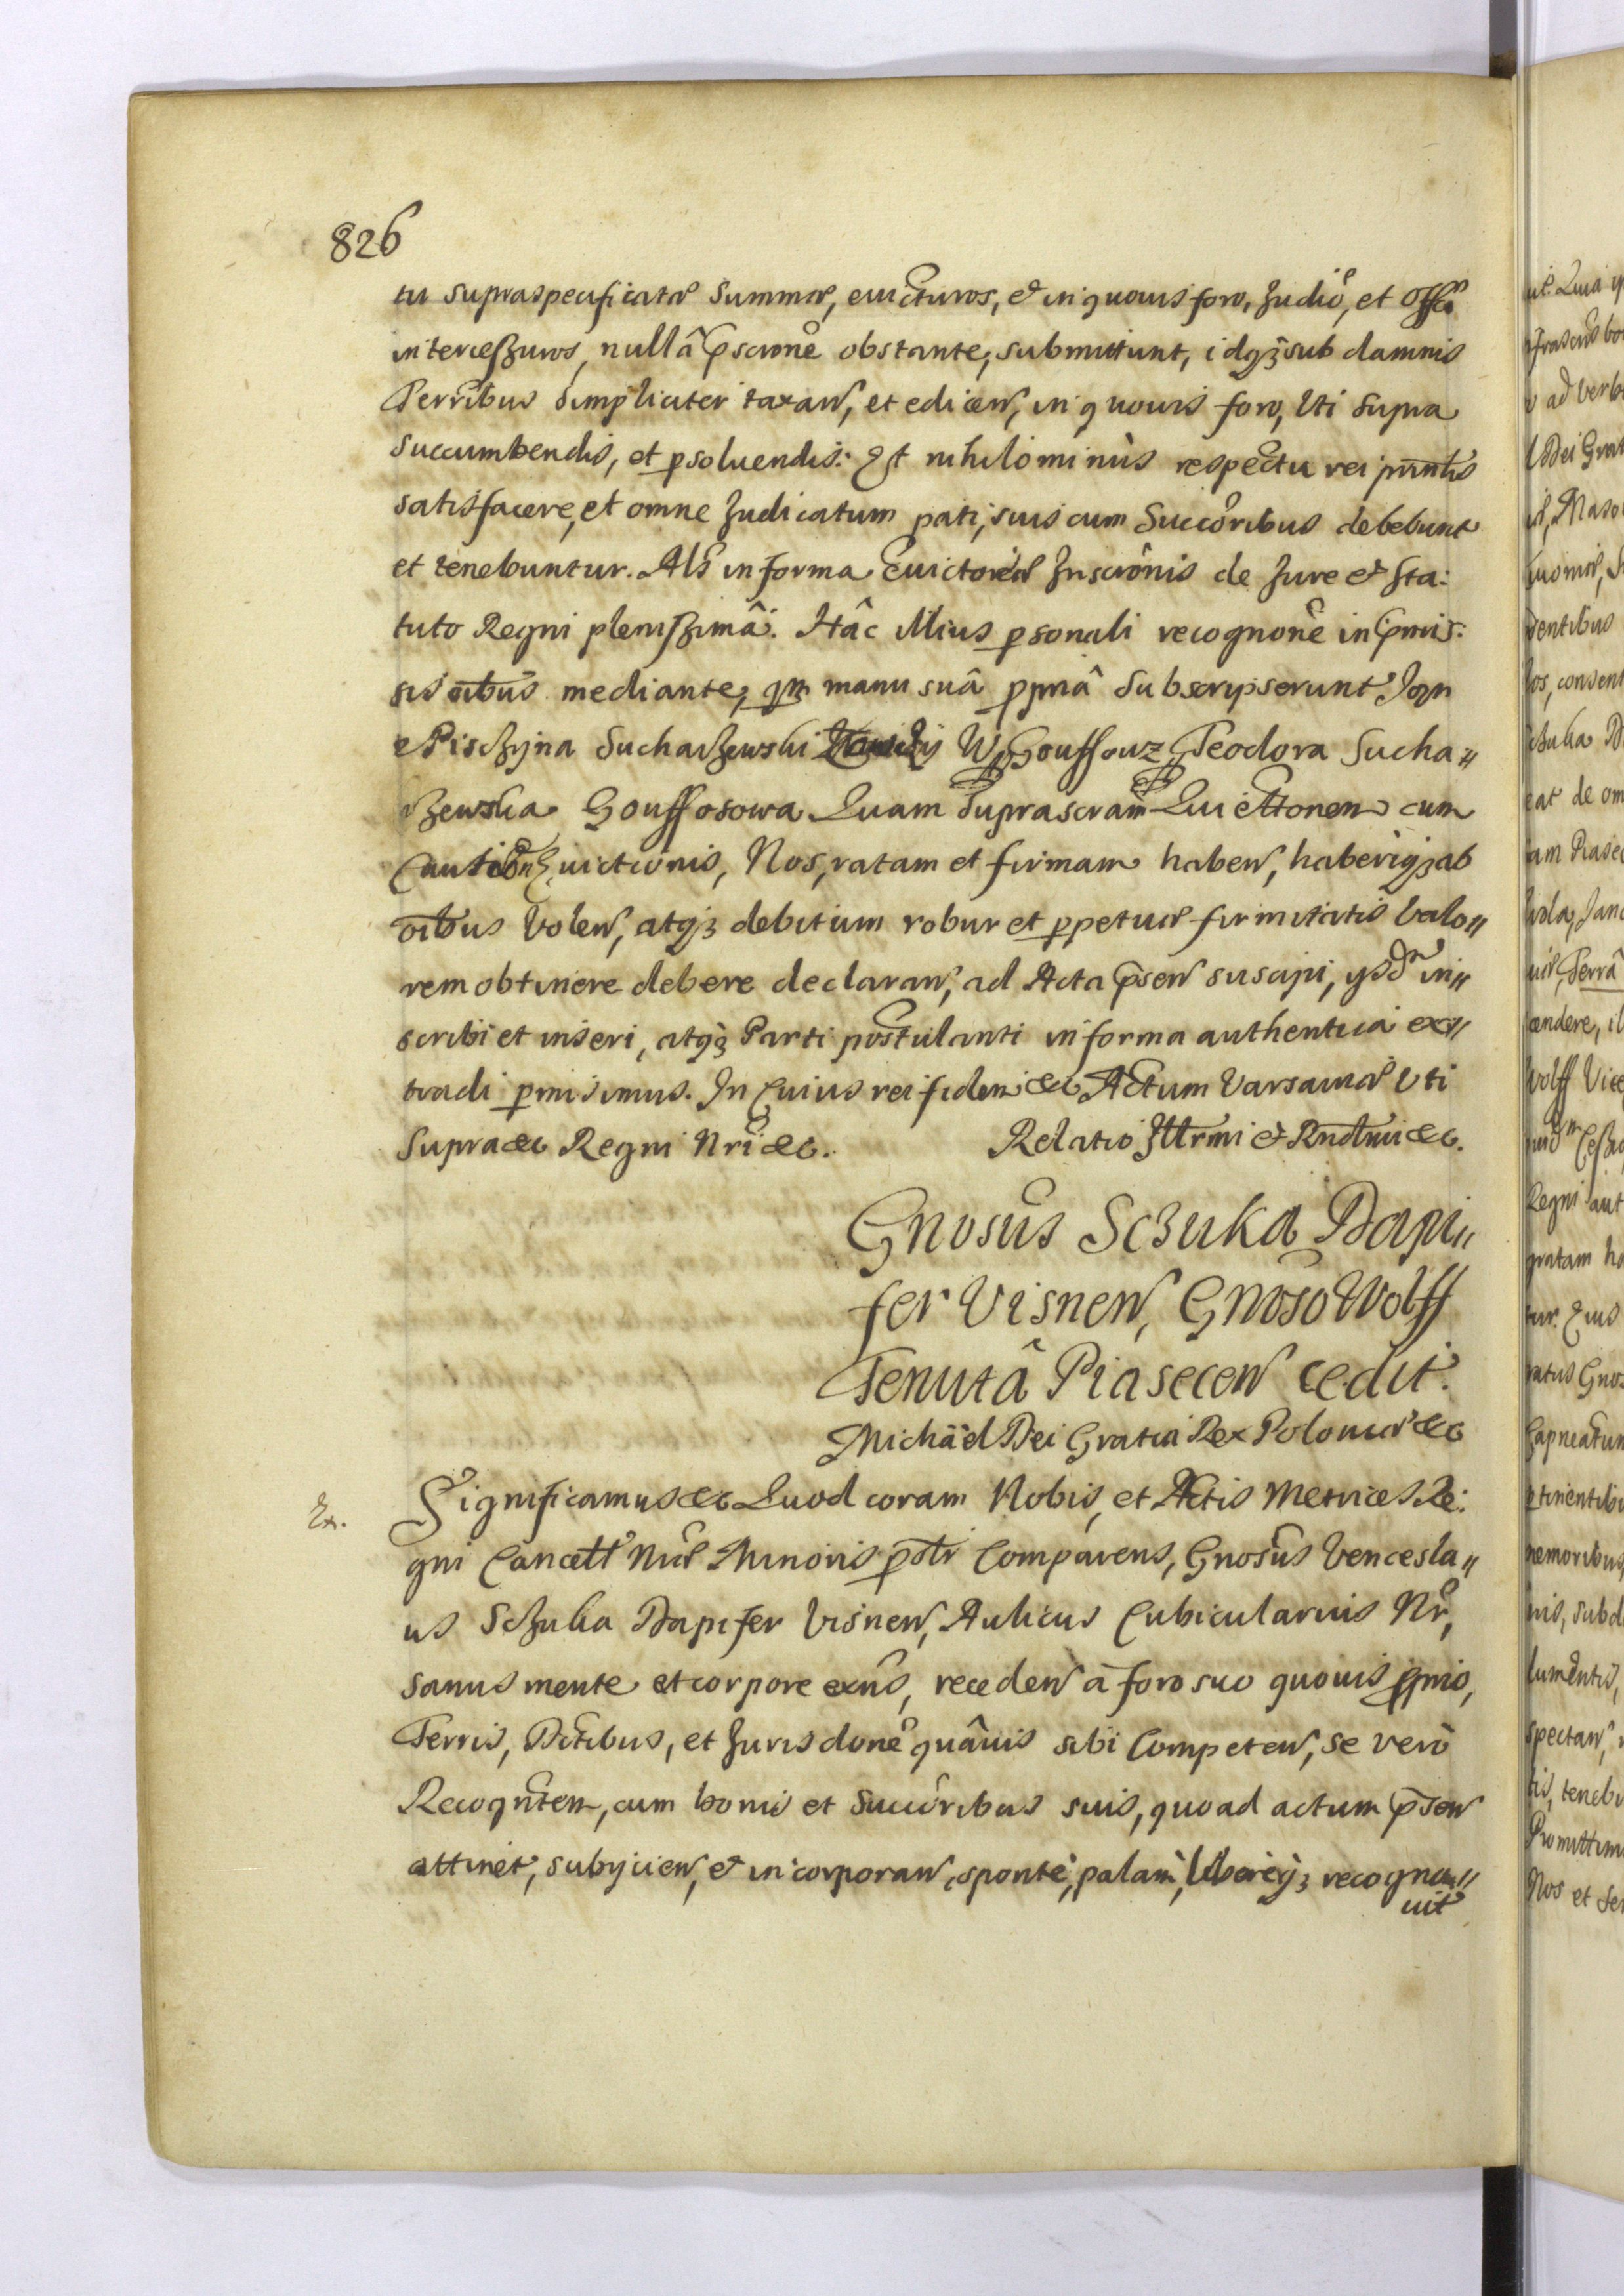 826
tu supraspecificatæ Summæ, euicturos, et in quouis foro, Judiô, et Offô
intercessuros, nullâ p̃scrõne obstante, submittunt, idqȝ sub damnis
Terribus simpliciter taxan, et edicen, in quouis foro, Vti supra
succumbendis, et psoluendis: Et nihilominùs respectu rei
satisfacere, et omne Judicatum pati, suis cum Succôribus debebunt
et tenebuntur. Als in forma Euictoriæ Inscrônis de Jure et Sta:
tuto Regni plenissimâ. Hâc illius psonali recognône in p̃mis:
sis oîbus mediante, qm manu suâ ppriâ Subscripserunt Jan
Pisczyna Suchaczewski W Gouffouz Teodora Sucha〃
czewska Gouffosowa Quam Suprascram Quiettonem cum
Caution Euictionis, Nos, ratam et firmam haben, haberiqȝ ab
oîbus Volen, atqȝ debitum robur et ppetuæ firmitatis Valo〃
rem obtinere debere declaran, ad Acta p̃sen suscipi, ysdm in〃
scribi et inseri, atqȝ Parti postulanti in forma authentica ex〃
tradi pmisimus. In Cuius rei fidem &c Actum Varsauiæ Vti
Supra &c Regni Nrĩ &c. Relatio Illrmi et Rndmi &c.
Gnosûs Sczuka Dapi〃
fer Visnen, Gnoso Wolff
Tenutâ Piasecen cedit.
Michäel Dei Gratia Rex Poloniæ &c
Ex. Significamus &c Quod coram Nobis, et Actis Metrices Re:
gni Cancell Nræ Minoris pstr Comparens, Gnosûs Vencesla〃
us Sczuka Dapifer Visnen, Aulicus Cubicularius Nr̃,
sanus mente et corpore exñs, receden à foro suo quouis pprio,
Terris, Dctibus, et Jurisdonê quâuis sibi Competen, se verò
Recogntem, cum bonis et Succôribus suis, quoad actum p̃sen
attinet, subijcien, et incorporan, sponte, palam, libereqȝ recogno〃
uit